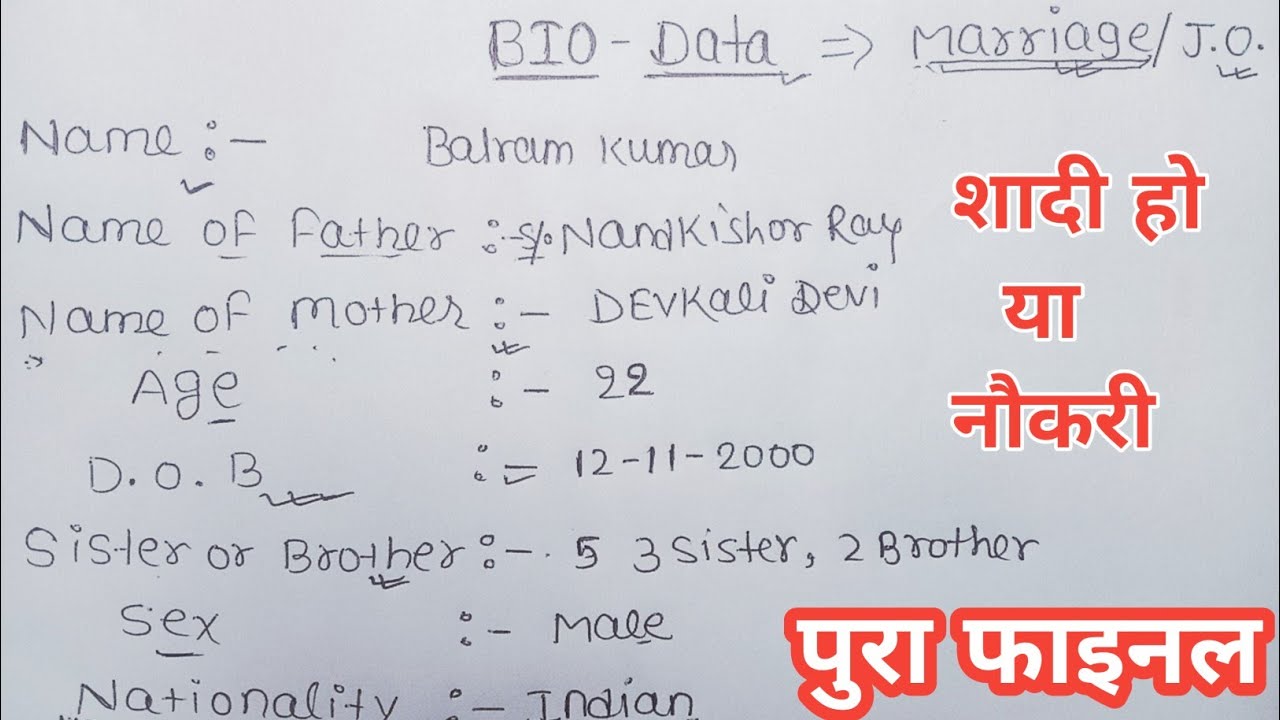 BIO - Data ⇒ Marriage/J.O.
Name :- Balram Kumar
Name of Father :- S/o Nandkishor Ray
Name of Mother :- DEVKali Devi
Age :- 22
D.O.B := 12-11-2000
Sister or Brother :- 5 3 Sister, 2 Brother
Sex :- Male
Nationality :- Indian
शादी हो
या
नौकरी
पुरा फाइनल